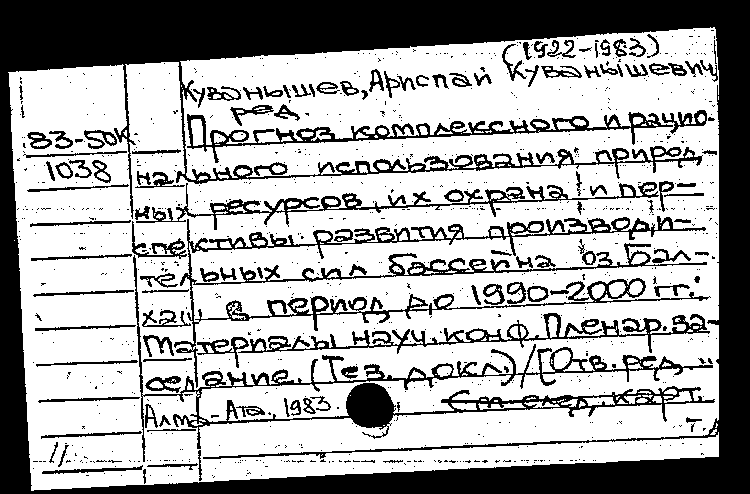 (1922-1983)
Куванышев, Ариспай Куванышевич,
ред.
83-50К Прогноз комплексного и рацио-
1038 нального использования природ-
ных ресурсов, их охрана и пер-
спективы развития производи-
тельных сил бассейна оз. Бал-
хаш в период до 1990-2000 гг.:
Материалы науч. конф. Пленар. за-
седание. (Тез. докл.) / [Отв. ред. ...
Алма-Ата, 1983. См след. карт.
11